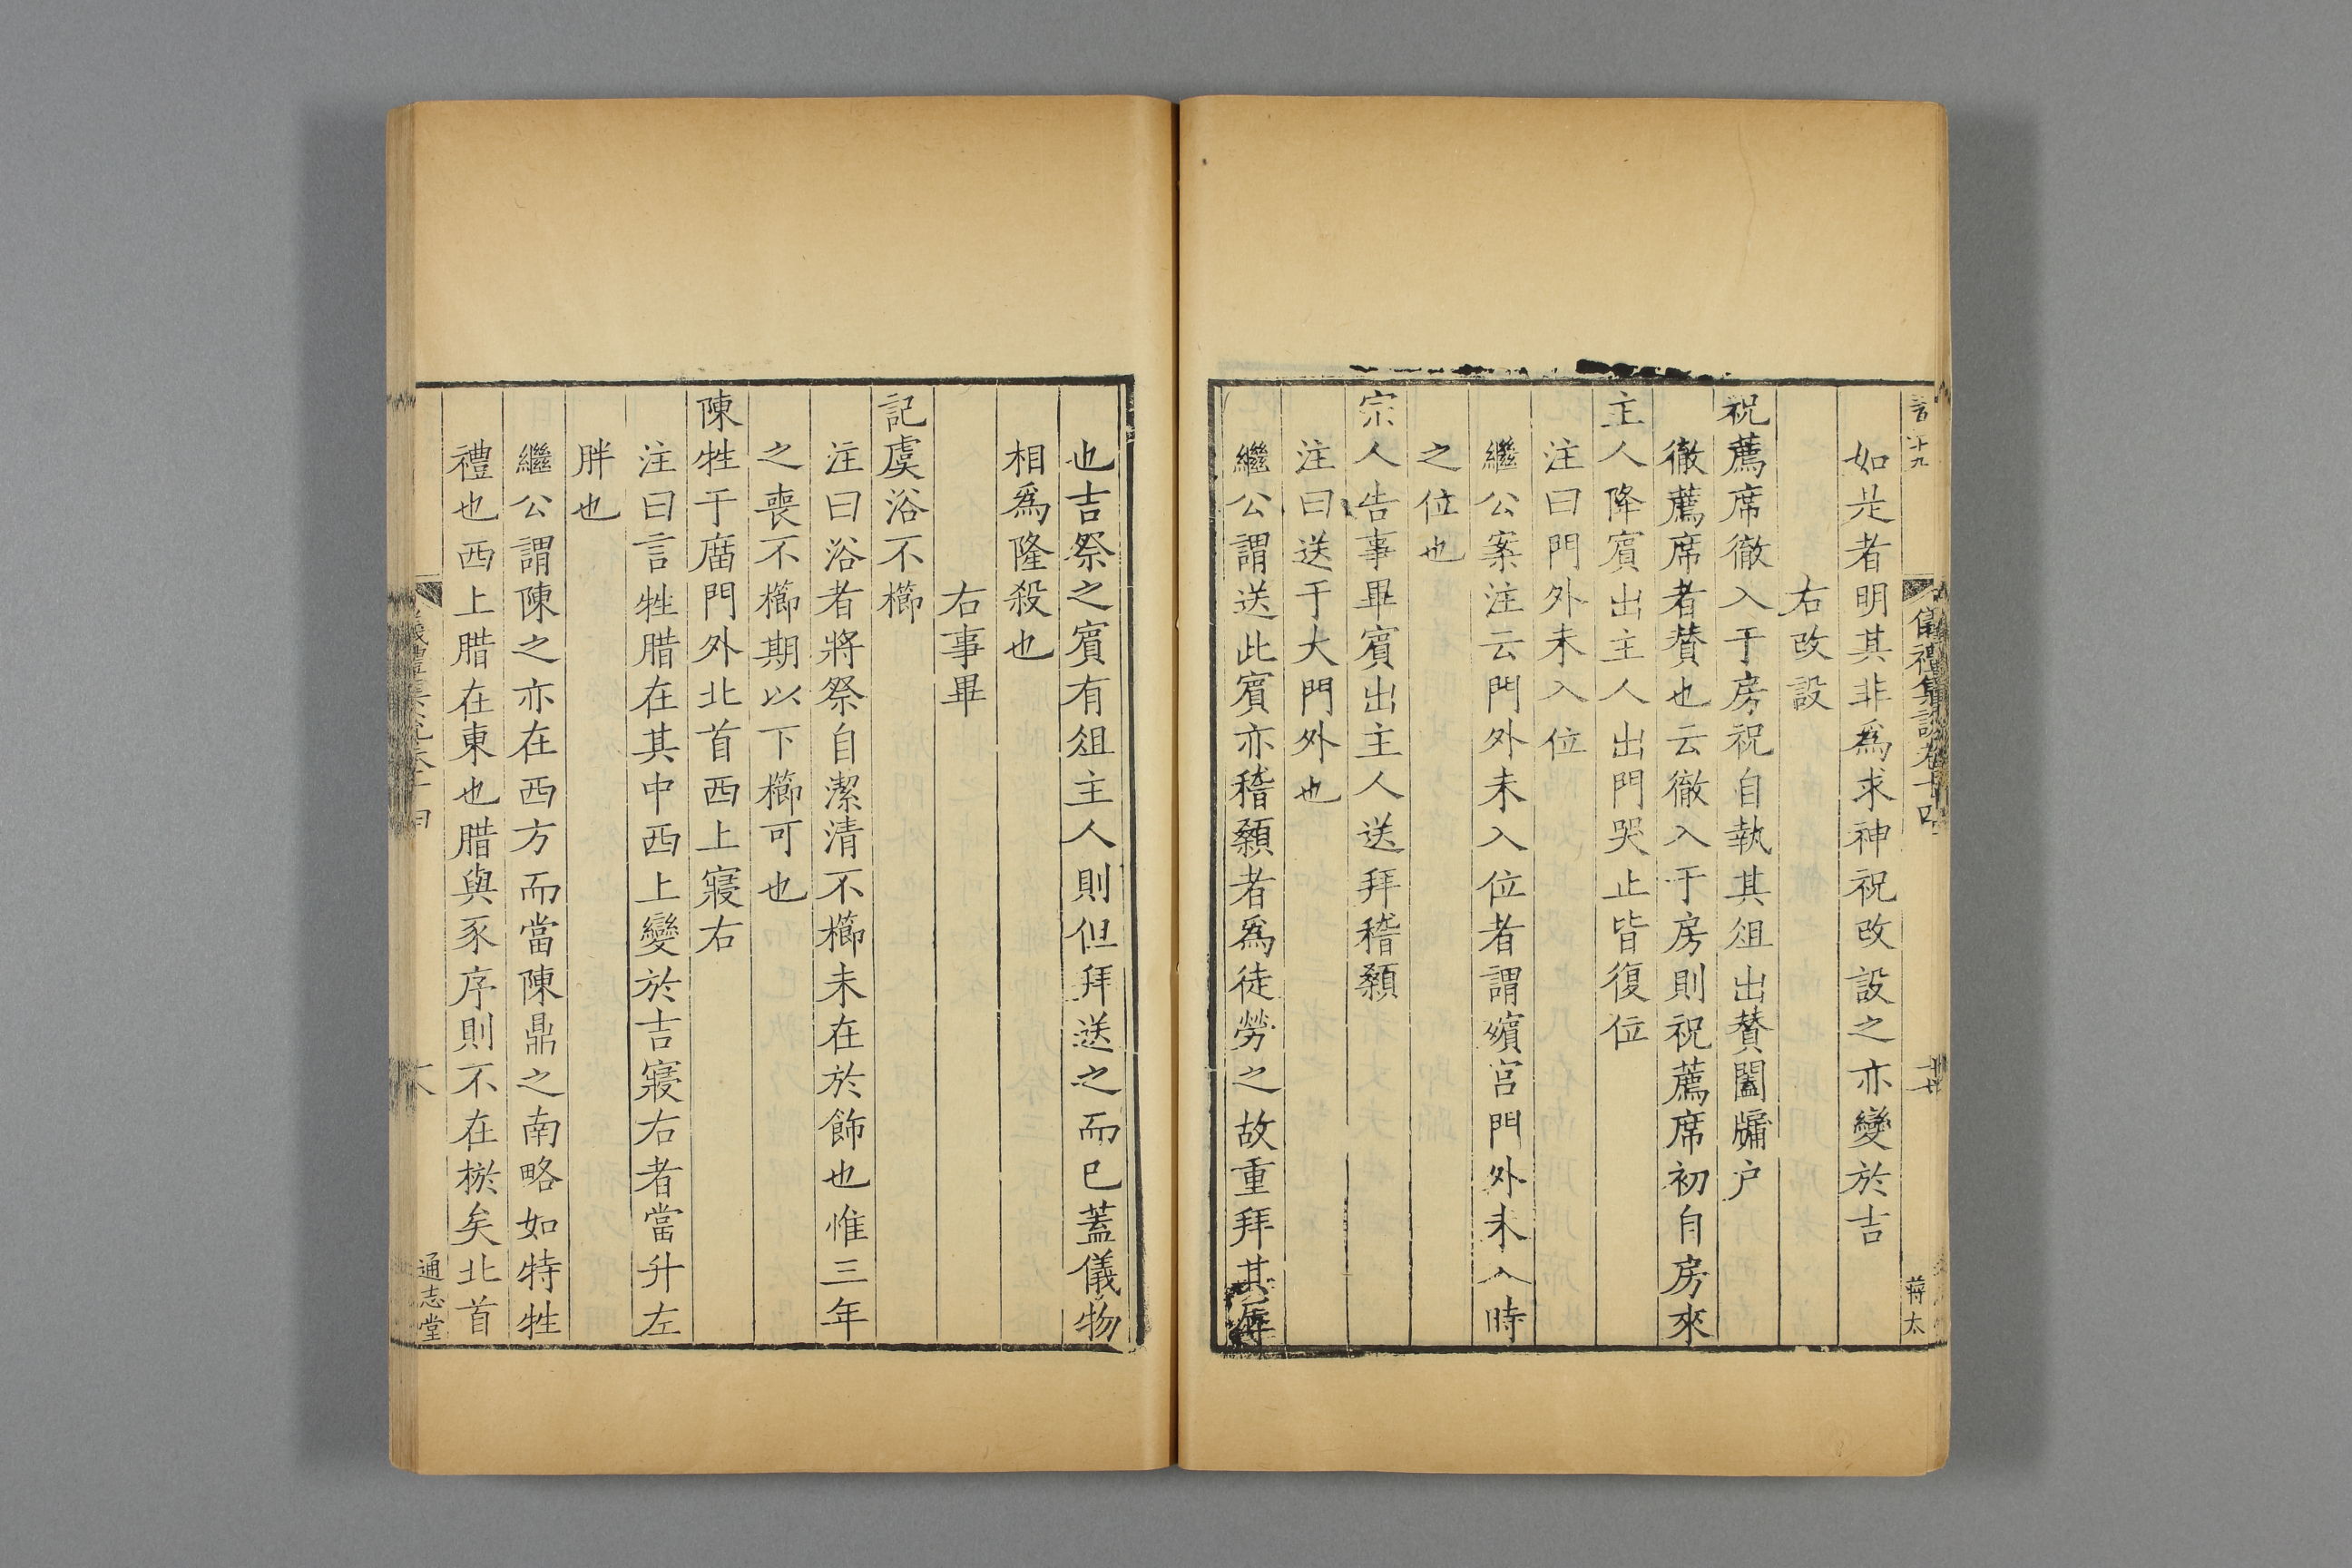 儀禮集說卷十四
蔣太
如是者明其非爲求神祝改設之亦變於吉
右改設
祝薦席徹入于房祝自執其俎出賛闔牖户
徹薦席者賛也云徹入于房則祝薦席初自房來
主人降賓出主人出門哭止皆復位
注曰門外未入位
繼公案注云門外未入位者謂殯宫門外未入時
之位也
宗人告事畢賓出主人送拜稽顙
注曰送于大門外也
繼公謂送此賓亦稽顙者爲徒勞之故重拜其辱
也吉祭之賓有俎主人則但拜送之而已蓋儀物
相爲隆殺也
右事畢
記虞浴不櫛
注曰浴者將祭自潔清不櫛未在於飾也惟三年
之喪不櫛期以下櫛可也
陳牲于廟門外北首西上寢右
注曰言牲腊在其中西上變於吉寢右者當升左
胖也
繼公謂陳之亦在西方而當陳鼎之南略如特牲
禮也西上腊在東也腊與豕序則不在棜矣北首
通志堂